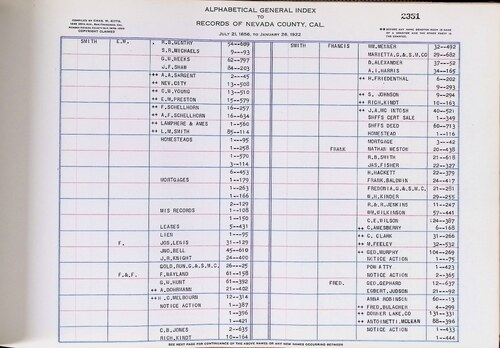 COMPILED BY CHAS. W. KITTS,
COPYRIGHT CLAIMED
ALPHABETICAL GENERAL INDEX
TO
RECORDS OF NEVADA COUNTY, CAL.
JULY 21, 1856, TO JANUARY 28, 1922
2351
SMITH E.M. R.B.GENTRY 34--609
S.R.MICHAELS 9---93
G.H.REEKS 82--797
J.F.SHAW 84--203
++ A.A.SARGENT 2---45
++ NEV.CITY 13--508
++ C.W.YOUNG 13--510
++ E.M.PRESTON 15--579
++ F.SCHELLHORN 16--257
++ A.F.SCHELLHORN 16--634
++ LAMPHERE & AMES 1--560
++ L.W.SMITH 85--114
HOMESTEADS 1---95
1--258
1--570
3--114
6--453
MORTGAGES 1--179
1--263
1--166
2--129
MIS RECORDS 1--108
1--150
LEASES 5--431
LIEN 1---95
F. JOS.LEWIS 31--129
JNO.BELL 45--610
J.R.KNIGHT 24--400
GOLD.RUN.G.& S.M.C. 26---25
F.& F. F.NAYLAND 61--158
G.H.HUNT 61--392
++ A.DOHRMANN 21--402
++ H.C.MELBOURN 12--314
NOTICE ACTION 1--387
1--396
1--421
C.B.JONES 2--635
RICH.RINDT 10--164
SMITH FRANCIS WM.MESSER 32--492
MARIETTA.G.& S.M.CO 29--682
B.ALEXANDER 37---52
A.I.HARRIS 34--165
++ H.FRIEDENTHAL 6--202
9--293
++ S. JOHNSON 9--294
++ RICH.KINDT 10--163
++ J.A.MC INTOSH 40--521
SHFFS CERT SALE 1--349
SHFFS DEED 60--713
HOMESTEAD 1--116
MORTGAGE 3---42
FRANK NATHAN WESTON 20--438
R.B.SMITH 21--618
JAS.FISHER 22--327
H.HACKETT 22--379
FRANK.BALDWIN 24--417
FREDONIA.G.& S.M.C. 21--281
W.H.KINDER 29--255
R.& H.JENKINS 11--247
WM.WILKINSON 57--441
C.E.WILSON 124--387
++ C.AWESBERRY 6--168
++ C. CLARK 31--266
++ M.FEELEY 32--532
++ GEO.MURPHY 104--269
NOTICE ACTION 1---75
POW ATTY 1--423
NOTICE ACTION 2--365
FRED. GEO.GEPHARD 12--637
EGBERT.JUDSON 21---92
ANNA ROBINSON 60--113
++ FRED.BULACHER 4--299
++ DONNER LAKE CO 131--331
++ ANTOINETTI.MCLEAN 88--396
NOTICE ACTION 1--433
1--444
SEE NEXT PAGE FOR CONTINUANCE OF THE ABOVE NAME OR ANY NEW NAMES OCCURRING BETWEEN